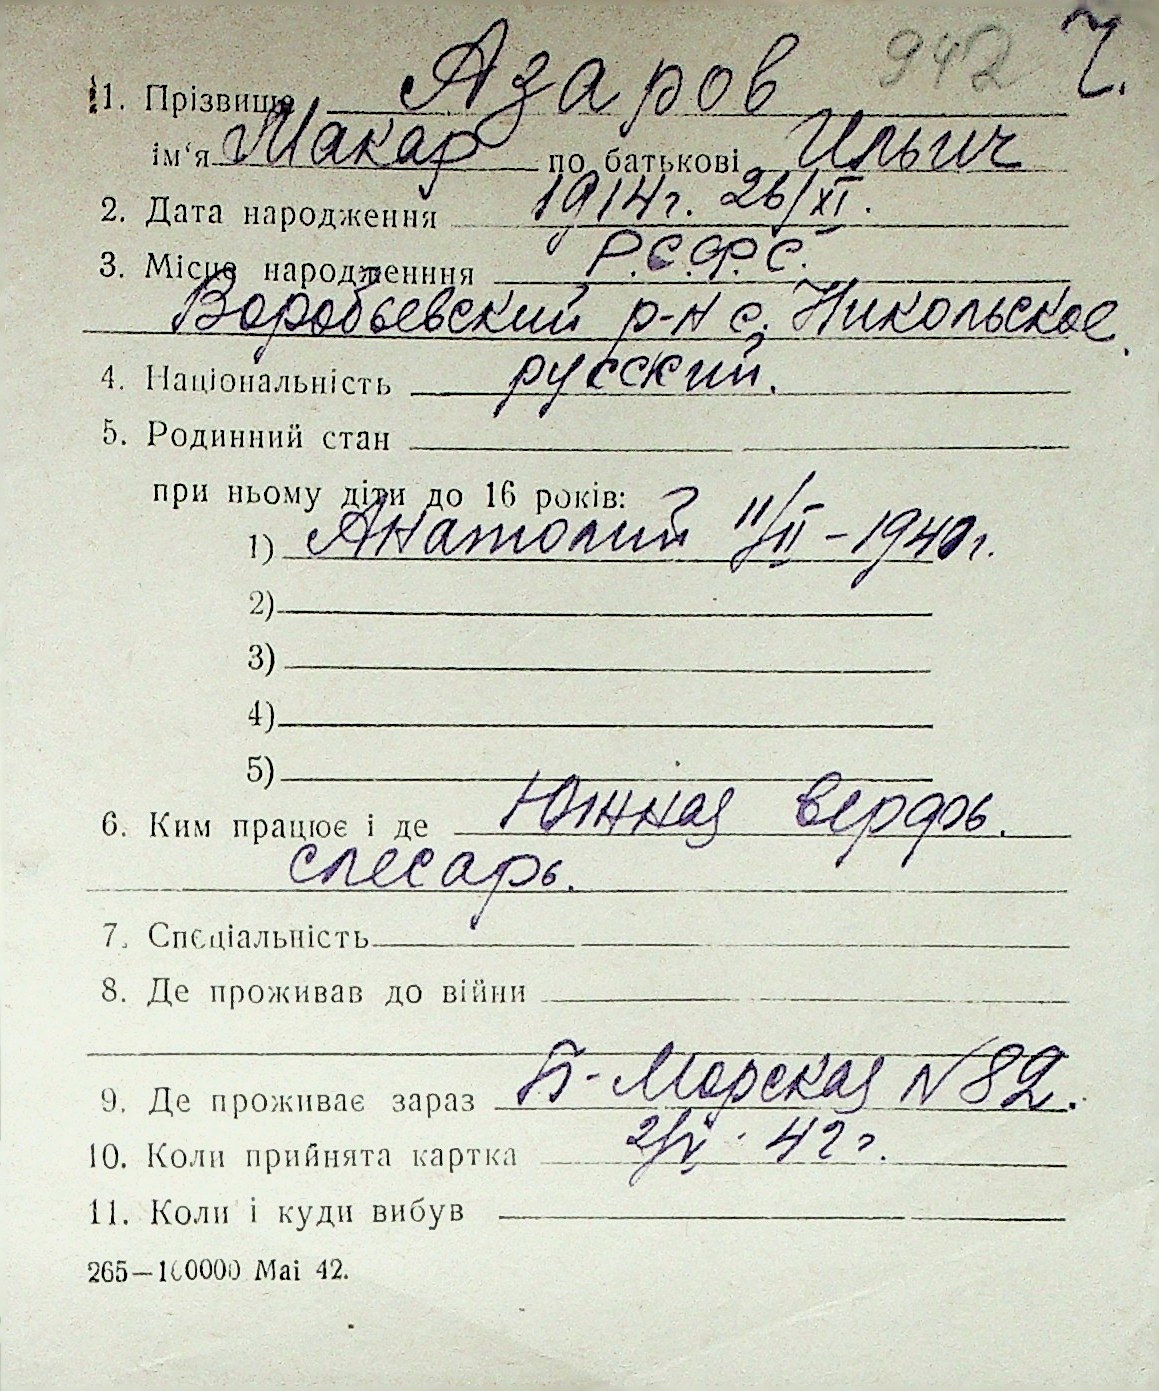 942 Ч.
1. Прізвище Азаров
ім'я Макар по батькові Ильич
2. Дата народження 1914г. 26/XI.
3. Місце народженння Р.С.Ф.С.
Воробьевский р-н с. Никольское.
4. Національність русский.
5. Родинний стан
при ньому діти до 16 років:
1) Анатолий 11/II – 1940г.
2)
3)
4)
5)
6. Ким працює і де Южная верфь.
слесарь.
7. Спеціальність
8. Де проживав до війни
9. Де проживає зараз Б-Морская № 82.
10. Коли прийнята картка 42г.
11. Коли і куди вибув
265—100000 Mai 42.